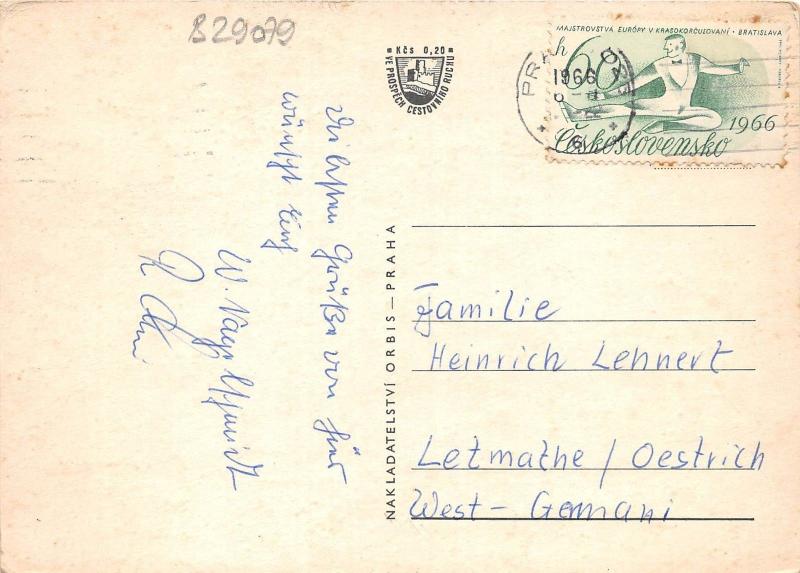 B29079
Kčs 0,20
VE PROSPĚCH CESTOVNÍHO RUCHU
MAJSTROVSTVÁ EURÓPY V KRASOKORČUĽOVANÍ • BRATISLAVA
60 h
1966
Československo
PRAHA
1966
NAKLADATELSTVÍ ORBIS — PRAHA
Die besten Grüße von hier
wünscht Euch
W.
Familie
Heinrich Lehnert
Letmathe / Oestrich
West - Gemani